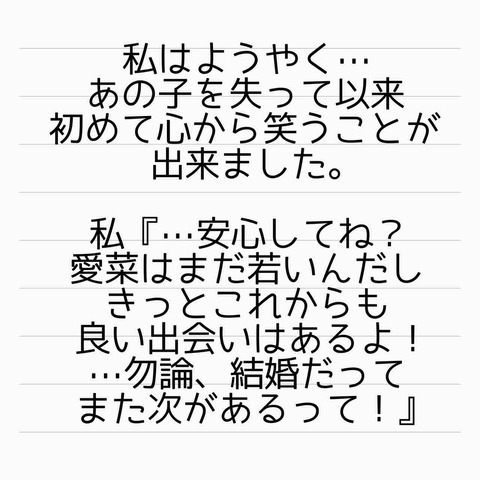 私はようやく…
あの子を失って以来
初めて心から笑うことが
出来ました。
私『…安心してね？
愛菜はまだ若いんだし
きっとこれからも
良い出会いはあるよ！
…勿論、結婚だって
また次があるって！』